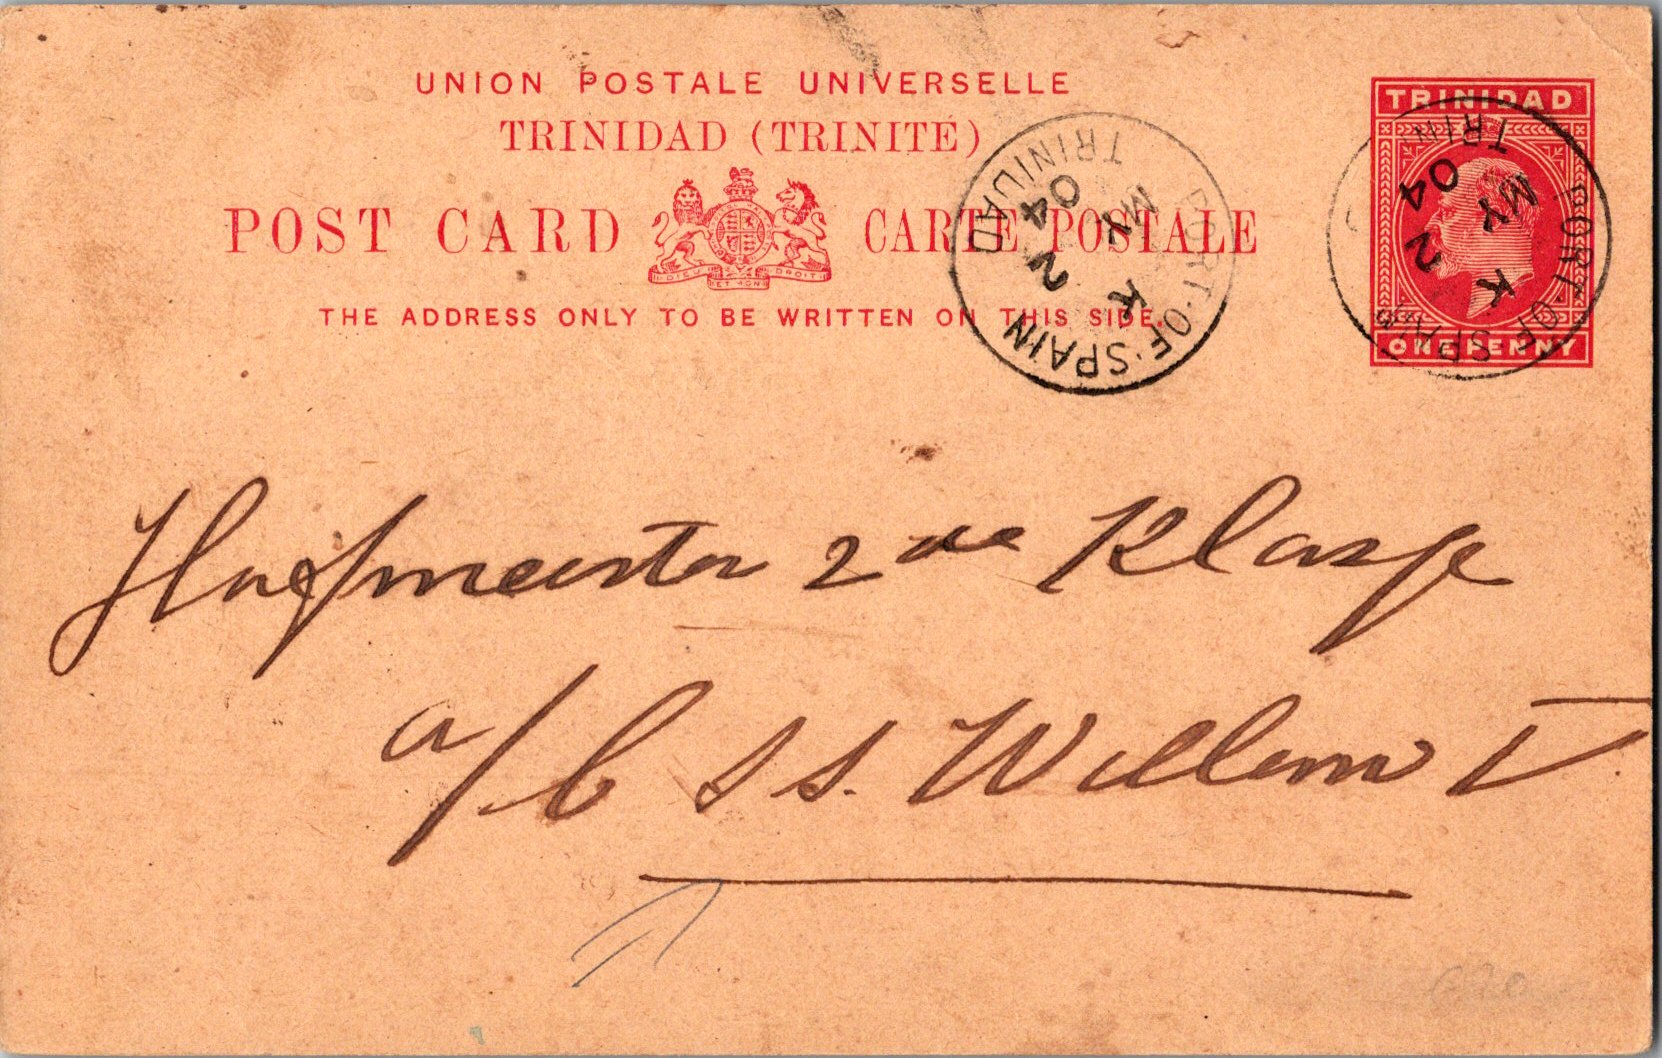 UNION POSTALE UNIVERSELLE
TRINIDAD (TRINITÉ)
POST CARD CARTE POSTALE
DIEU ET MON DROIT
THE ADDRESS ONLY TO BE WRITTEN ON THIS SIDE.
TRINIDAD
ONE PENNY
PORT·OF·SPAIN
TRINIDAD
K
MY 2
04
PORT·OF·SPAIN
TRIN
K
MY 2
04
Hofmeester 2de Klasse
a/b S S. Willem V